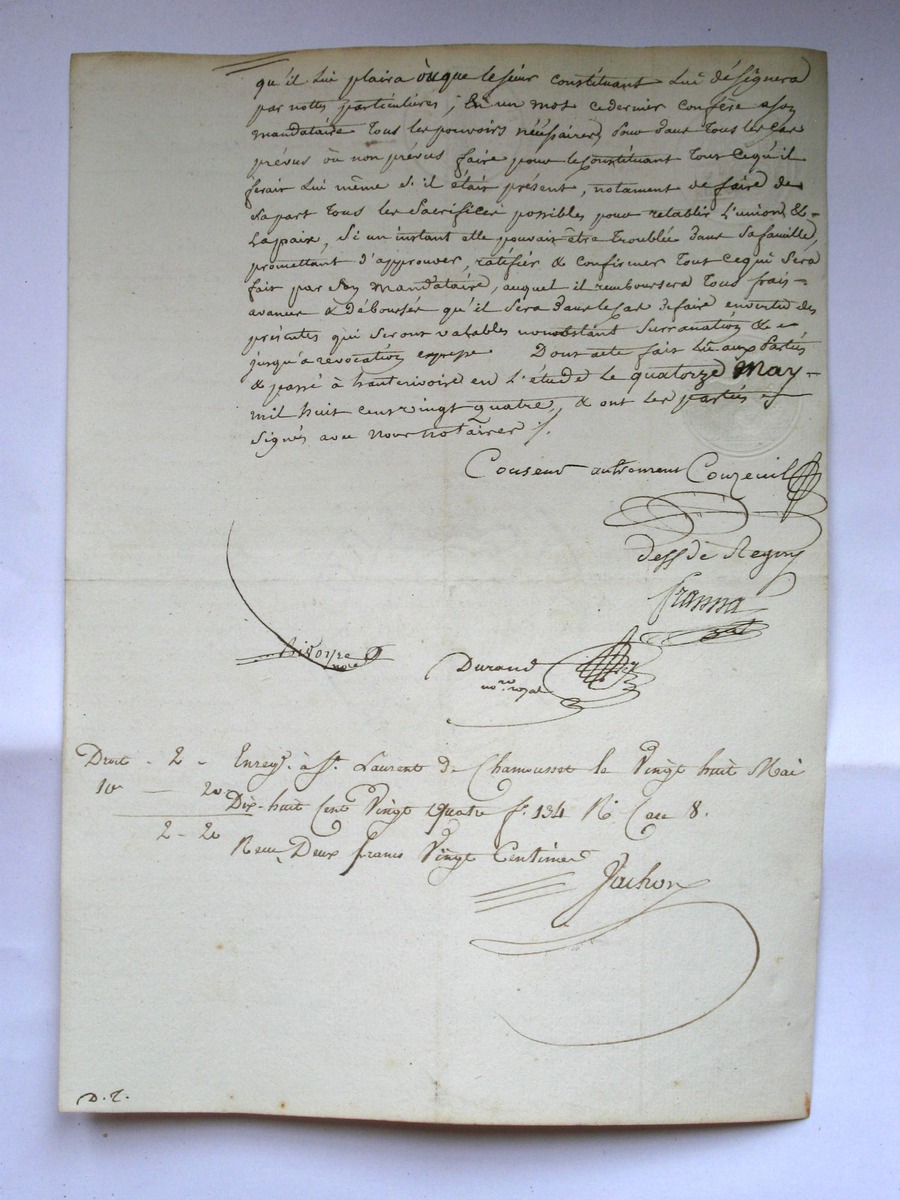 qu'il lui plaira ou que le sieur constituant lui désignera
par nottes particulieres ; En un mot ce dernier confère a son
mandataire tous les pouvoirs nécéssaires pour dans tous les cas
prévus ou non prévus faire pour le Constituant tout ce qu'il
ferait lui même s'il était présent, notament de faire de
sa part tous les sacrifices possibles pour retablir l'union &
la paix, si un instant elle pouvait être troublée dans sa famille,
promettant d'approuver, ratifiér & confirmer tout ce qui sera
fait par son mandataire, auquel il remboursera tous frais
avances & déboursés qu'il sera dans le cas de faire en vertu des
présentes qui seront valables nonobstant surranation &
jusqu'a revocation expresse. Dont acte fait lu aux Parties
& passé à hauterivoire en l'étude le quatorze May
mil huit cent vingt quatre, & ont les parties
signés avec nous notaires ./.
Couseud autrement Couzeuil
Rivoyre
nore
Durand
nore royal
Droit - 2 - Enregt. à St. Laurent de Chamousset le Vingt huit Mai
10 — 20 Dix-huit Cent Vingt Quatre fo. 134 Ro. Case 8.
2 - 20 Recu Deux francs Vingt Centimes
Jachon
D. T.